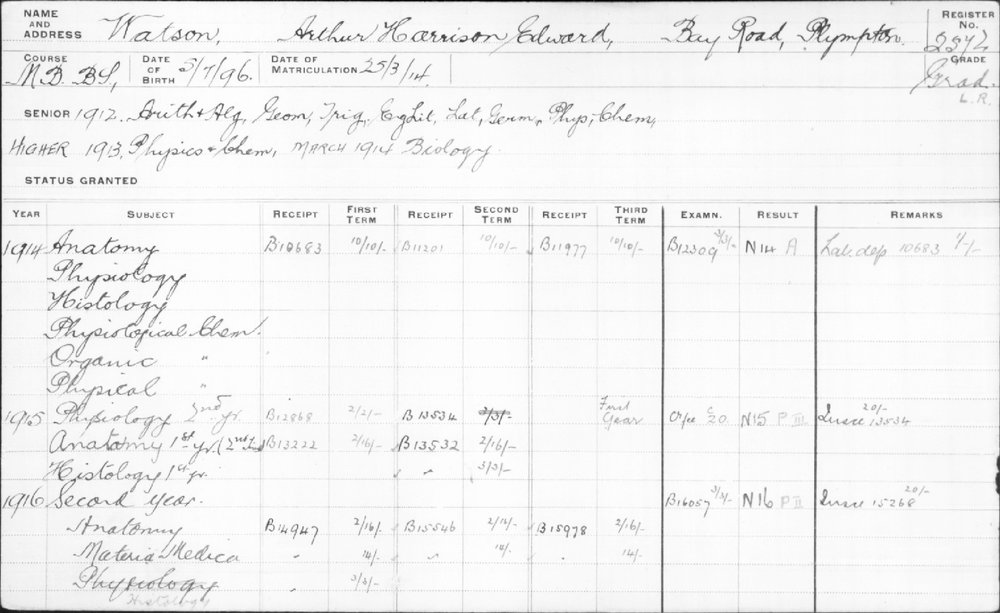 NAME AND ADDRESS Watson, Arthur Harrison Edward, Bay Road, Plympton. REGISTER No. 2372
COURSE M.B. B.S., DATE OF BIRTH 5/7/96. DATE OF MATRICULATION 25/3/14. GRADE Grad.
L.R.
SENIOR 1912. Arith & Alg, Geom, Trig, Eg Lit, Lat, Germ, Phys, Chem,
HIGHER 1913, Physics & Chem, MARCH 1914 Biology.
STATUS GRANTED
YEAR SUBJECT RECEIPT FIRST TERM RECEIPT SECOND TERM RECEIPT THIRD TERM EXAMN. RESULT REMARKS
1914 Anatomy B10683 10/10/- B11201 10/10/- B11977 10/10/- B12309 3/3/- N14 A Lab. dep 10683 1/-/-
Physiology
Histology
Physiological Chem.
Organic "
Physical "
1915 Physiology 2nd yr. B12868 2/2/- B13534 2/3/- First Year N15 P III 20/- 13534
Anatomy 1st yr. B13222 2/16/- B13532 2/16/-
Histology 1st yr. " 3/3/-
1916 Second Year. B16057 3/3/- N16 P II 15268 20/-
Anatomy B14947 2/16/- B15546 2/16/- B15978 2/16/-
Materia Medica " 14/- " 14/- 14/-
Physiology " 3/3/-
Histology